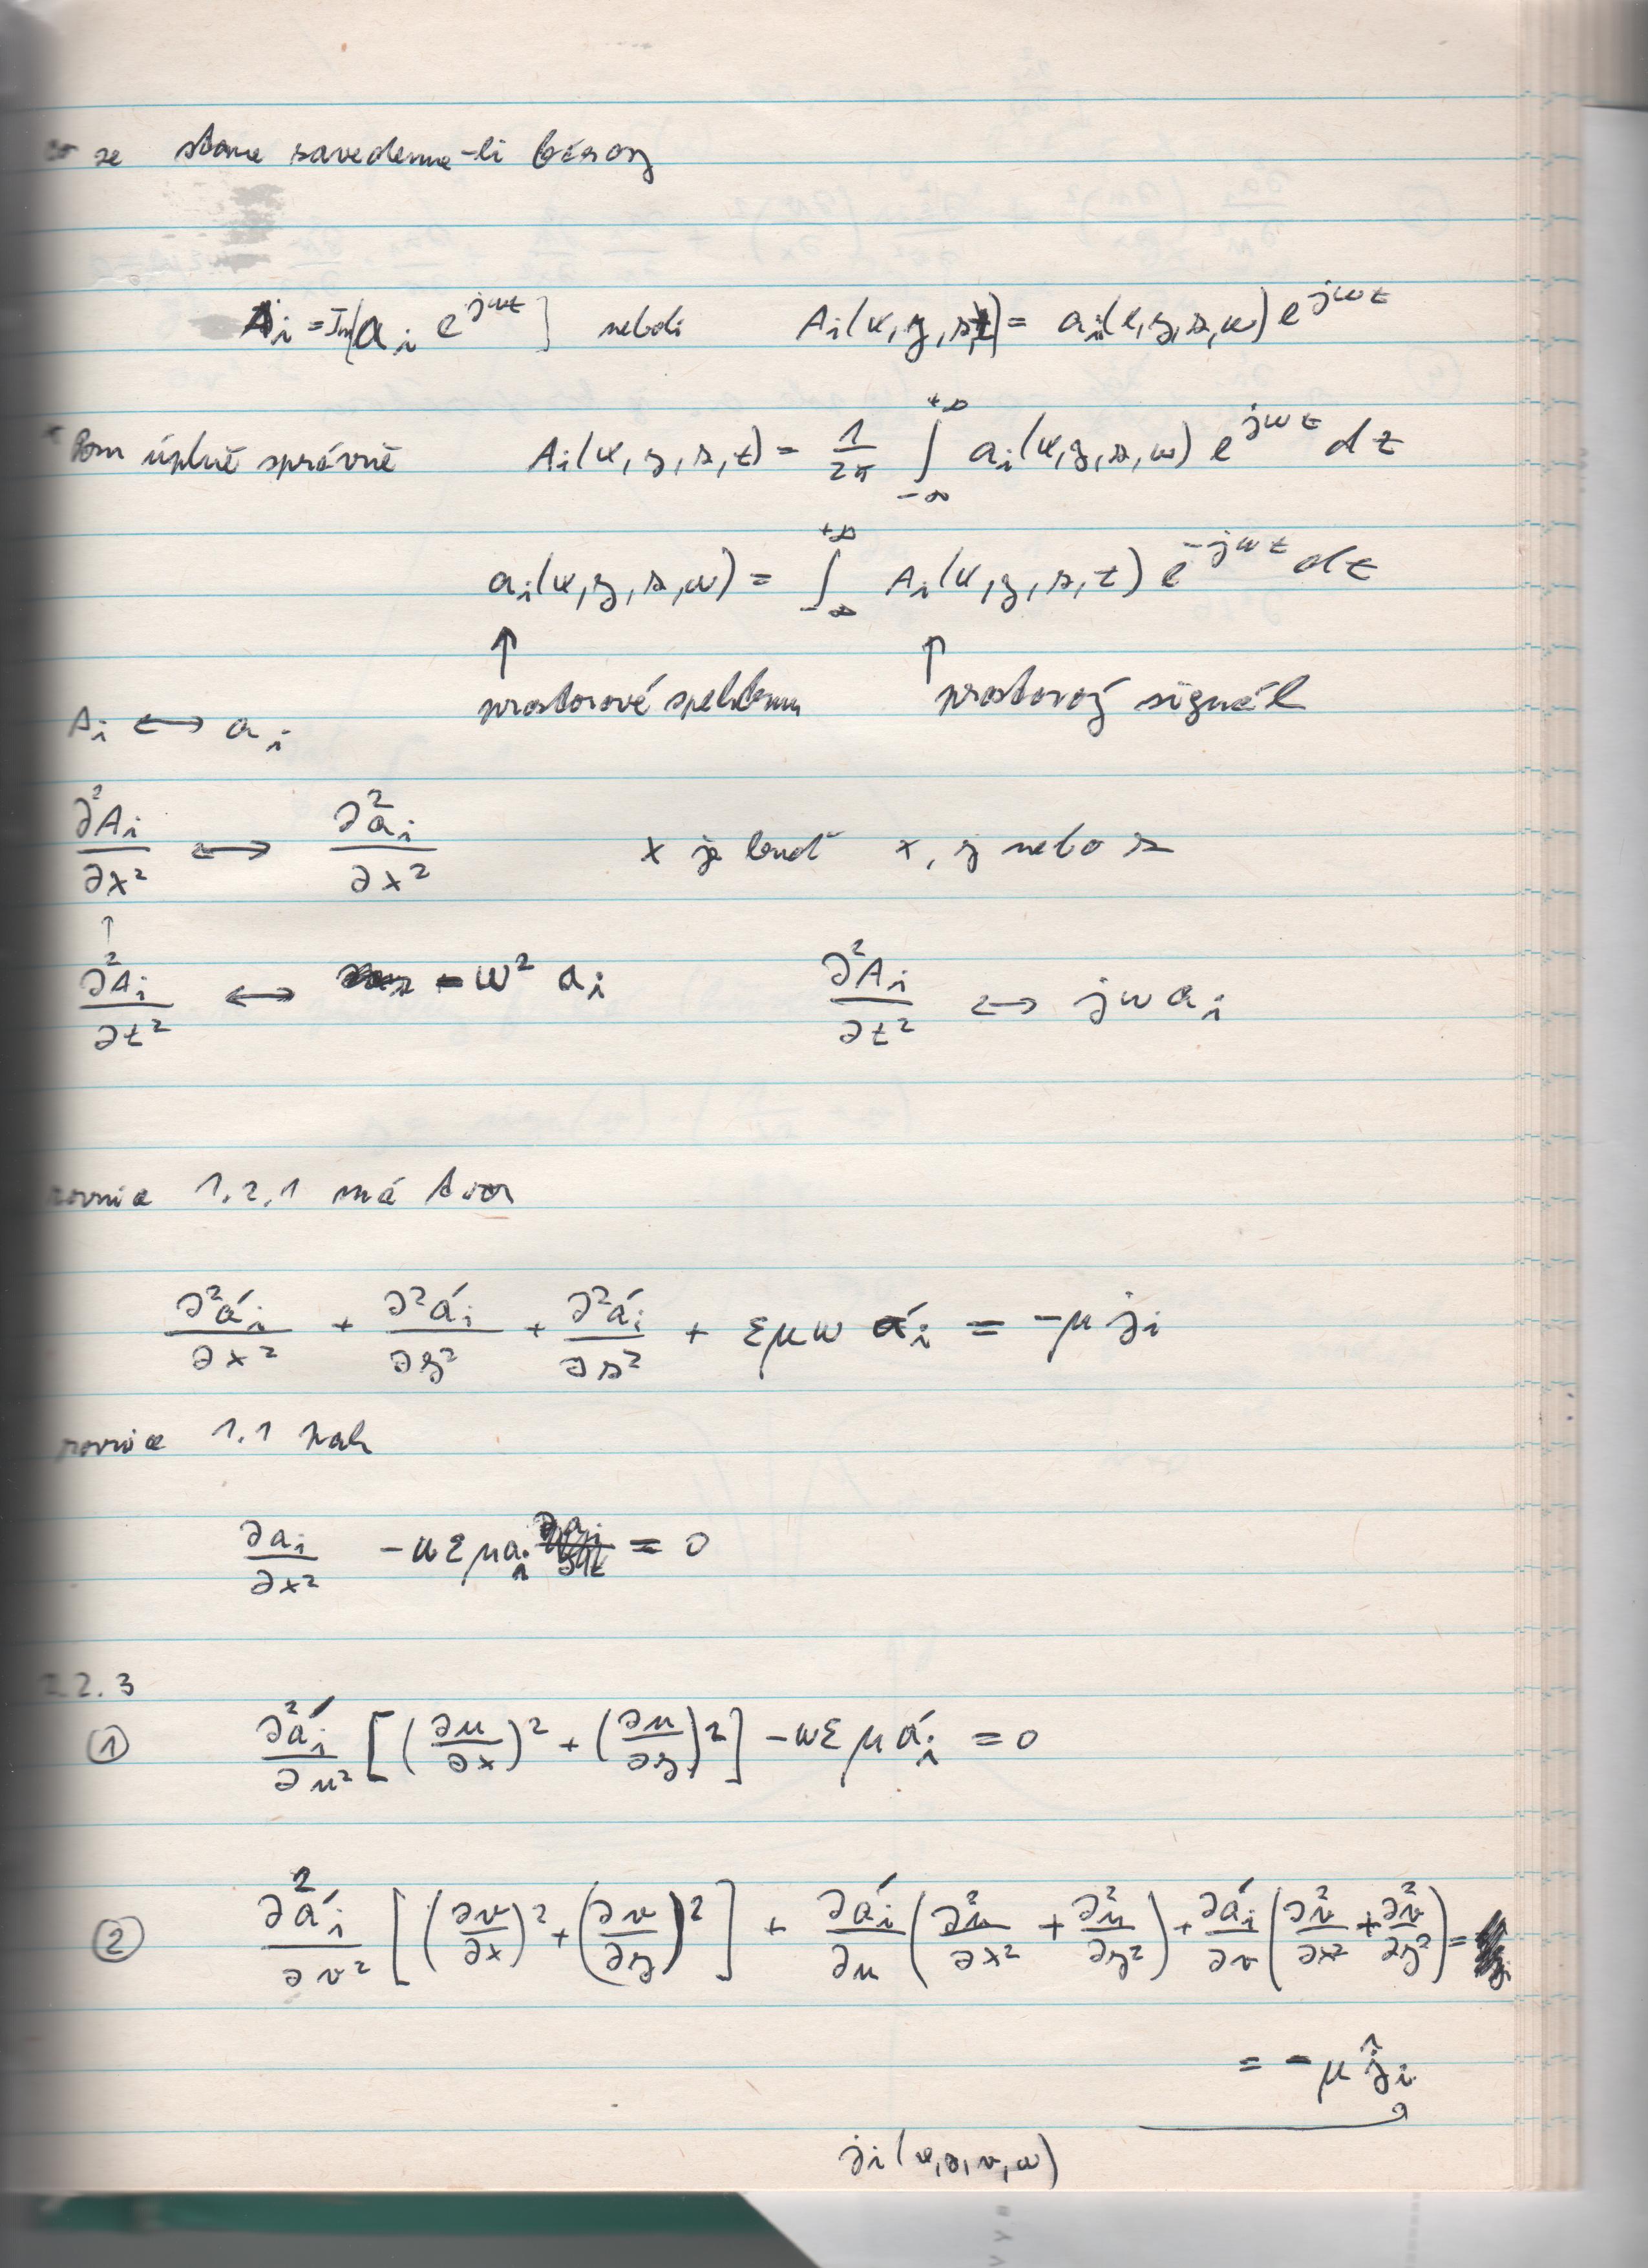 se stane zavedeme-li fázory
Aᵢ = Im[aᵢ e^{jωt}] neboli Aᵢ(x, y, z, t) = aᵢ(x, y, z, ω) e^{jωt}
úplně správně Aᵢ(x, y, z, t) = 1/2π ∫_{-∞}^{+∞} aᵢ(x, y, z, ω) e^{jωt} dt
aᵢ(x, y, z, ω) = ∫_{-∞}^{+∞} Aᵢ(x, y, z, t) e^{-jωt} dt
↑ ↑
prostorové spektrum prostorový signál
Aᵢ ↔ aᵢ
∂²Aᵢ/∂x² ↔ ∂²aᵢ/∂x² x je buď x, y nebo z
↑
∂²Aᵢ/∂t² ↔ -ω² aᵢ ∂²Aᵢ/∂t² ↔ jω aᵢ
rovnice 1.2.1 má tvar
∂²áᵢ/∂x² + ∂²áᵢ/∂y² + ∂²áᵢ/∂z² + εμω áᵢ = -μ jᵢ
rovnice 1.1 pak
∂aᵢ/∂x² - ωεμaᵢ = 0
2.3
① ∂²áᵢ/∂u² [(∂u/∂x)² + (∂u/∂y)²] - ωεμ áᵢ = 0
② ∂²áᵢ/∂v² [(∂v/∂x)² + (∂v/∂y)²] + ∂áᵢ/∂u (∂²u/∂x² + ∂²u/∂y²) + ∂áᵢ/∂v (∂²v/∂x² + ∂²v/∂y²) =
= -μ ĵᵢ